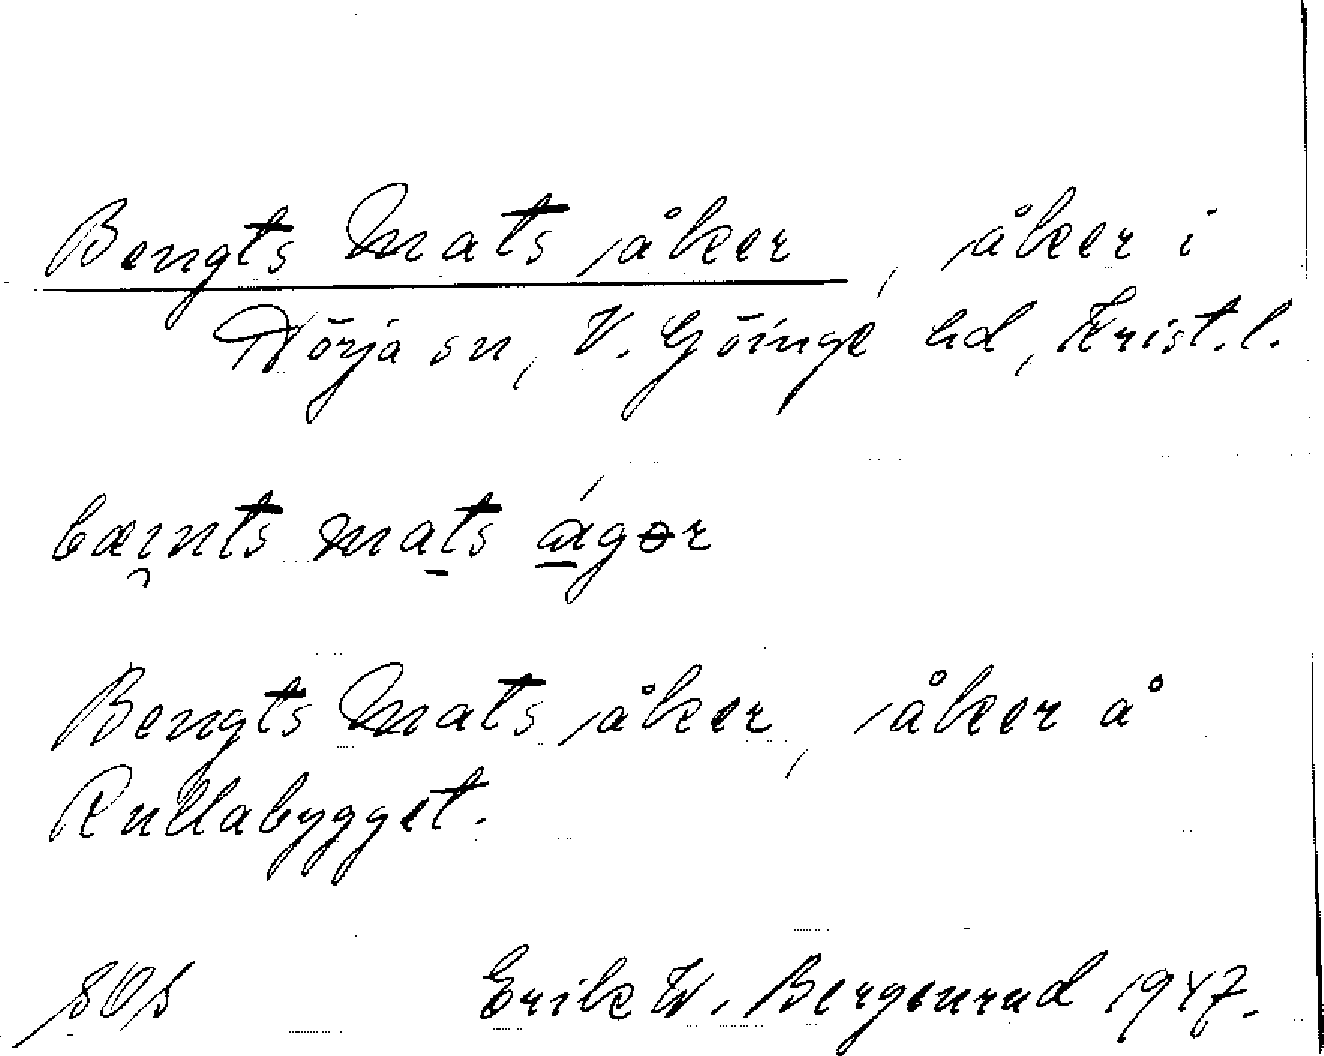 Bengts Mats åker, åker i
Nörja sn, V. Göinge hd, Krist.l.
bæɪ̯nts mats ágər
Bengts Mats åker, åker å
Rullabygget.
SOS Erik W. Bergenrud 1947.